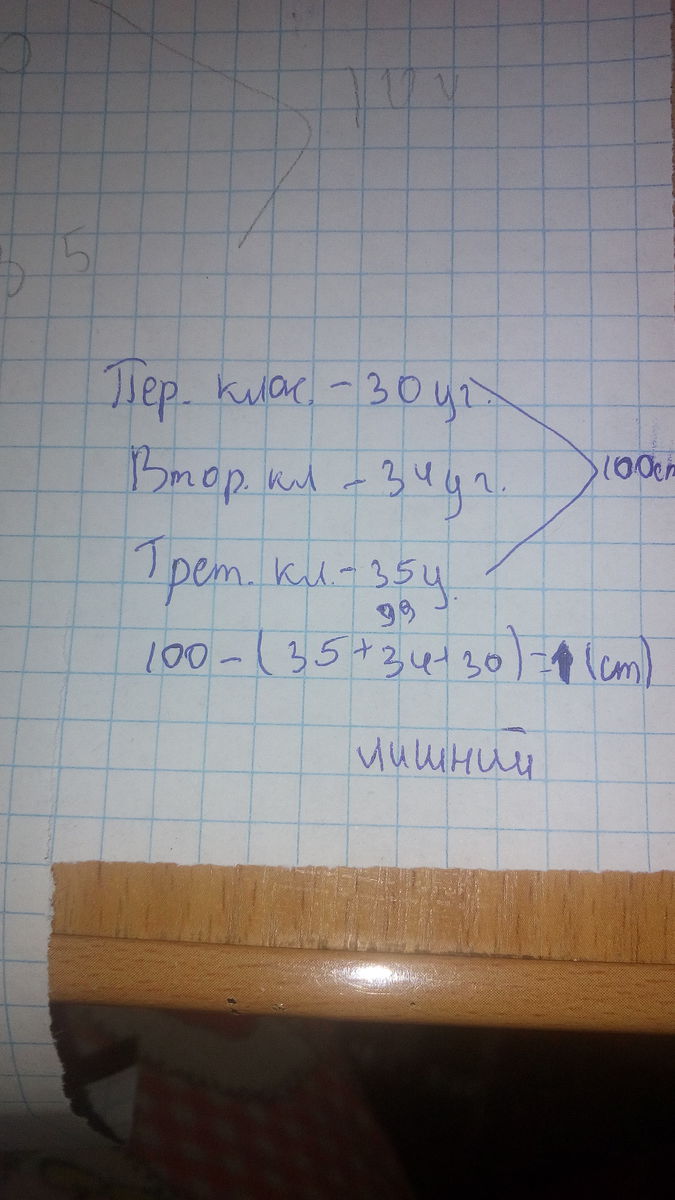 100
35
Пер. клас. - 30 уг.
Втор. кл - 34 уг.
100ст
Трет. кл. - 35 у.
99
100 - (35 + 34 + 30) = 1 (ст)
лишний